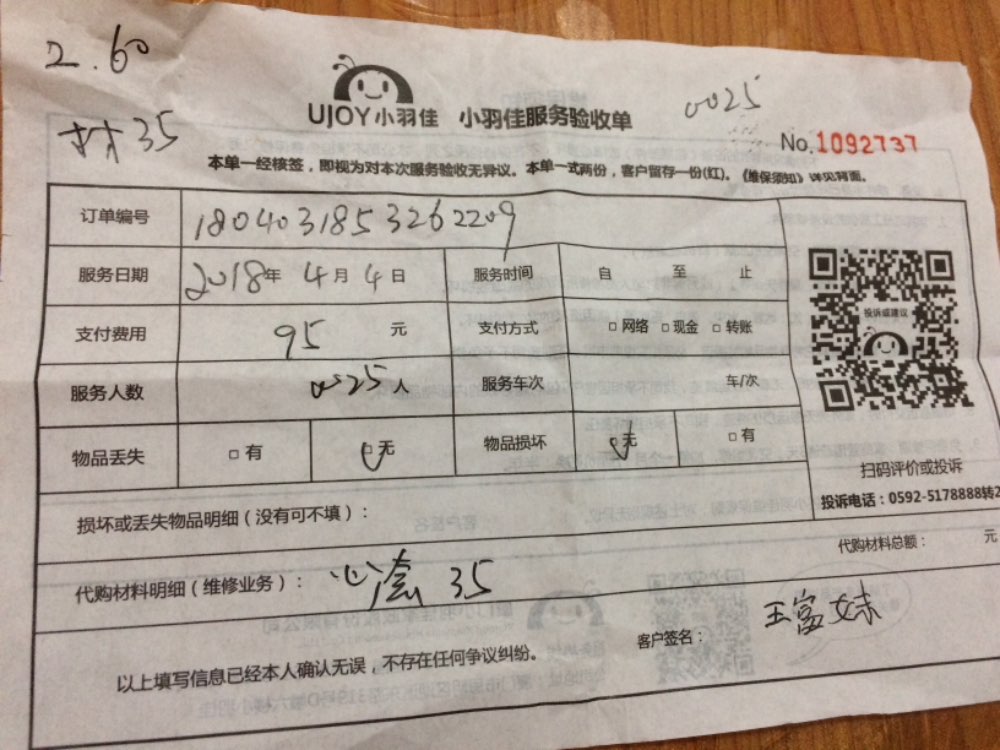 2.60
材35
0025
UJOY小羽佳 小羽佳服务验收单
No.1092737
本单一经核签，即视为对本次服务验收无异议。本单一式两份，客户留存一份(红)。《维保须知》详见背面。
订单编号 1804031853262209
服务日期 2018年 4月 4日 服务时间 自 至 止
支付费用 95 元 支付方式 □网络 □现金 □转账
投诉或建议
服务人数 0025人 服务车次 车/次
物品丢失 □有 □无 物品损坏 □无 □有
扫码评价或投诉
投诉电话：0592-5178888转2
损坏或丢失物品明细（没有可不填）：
代购材料总额： 元
代购材料明细（维修业务）： 35
客户签名： 王富妹
以上填写信息已经本人确认无误，不存在任何争议纠纷。